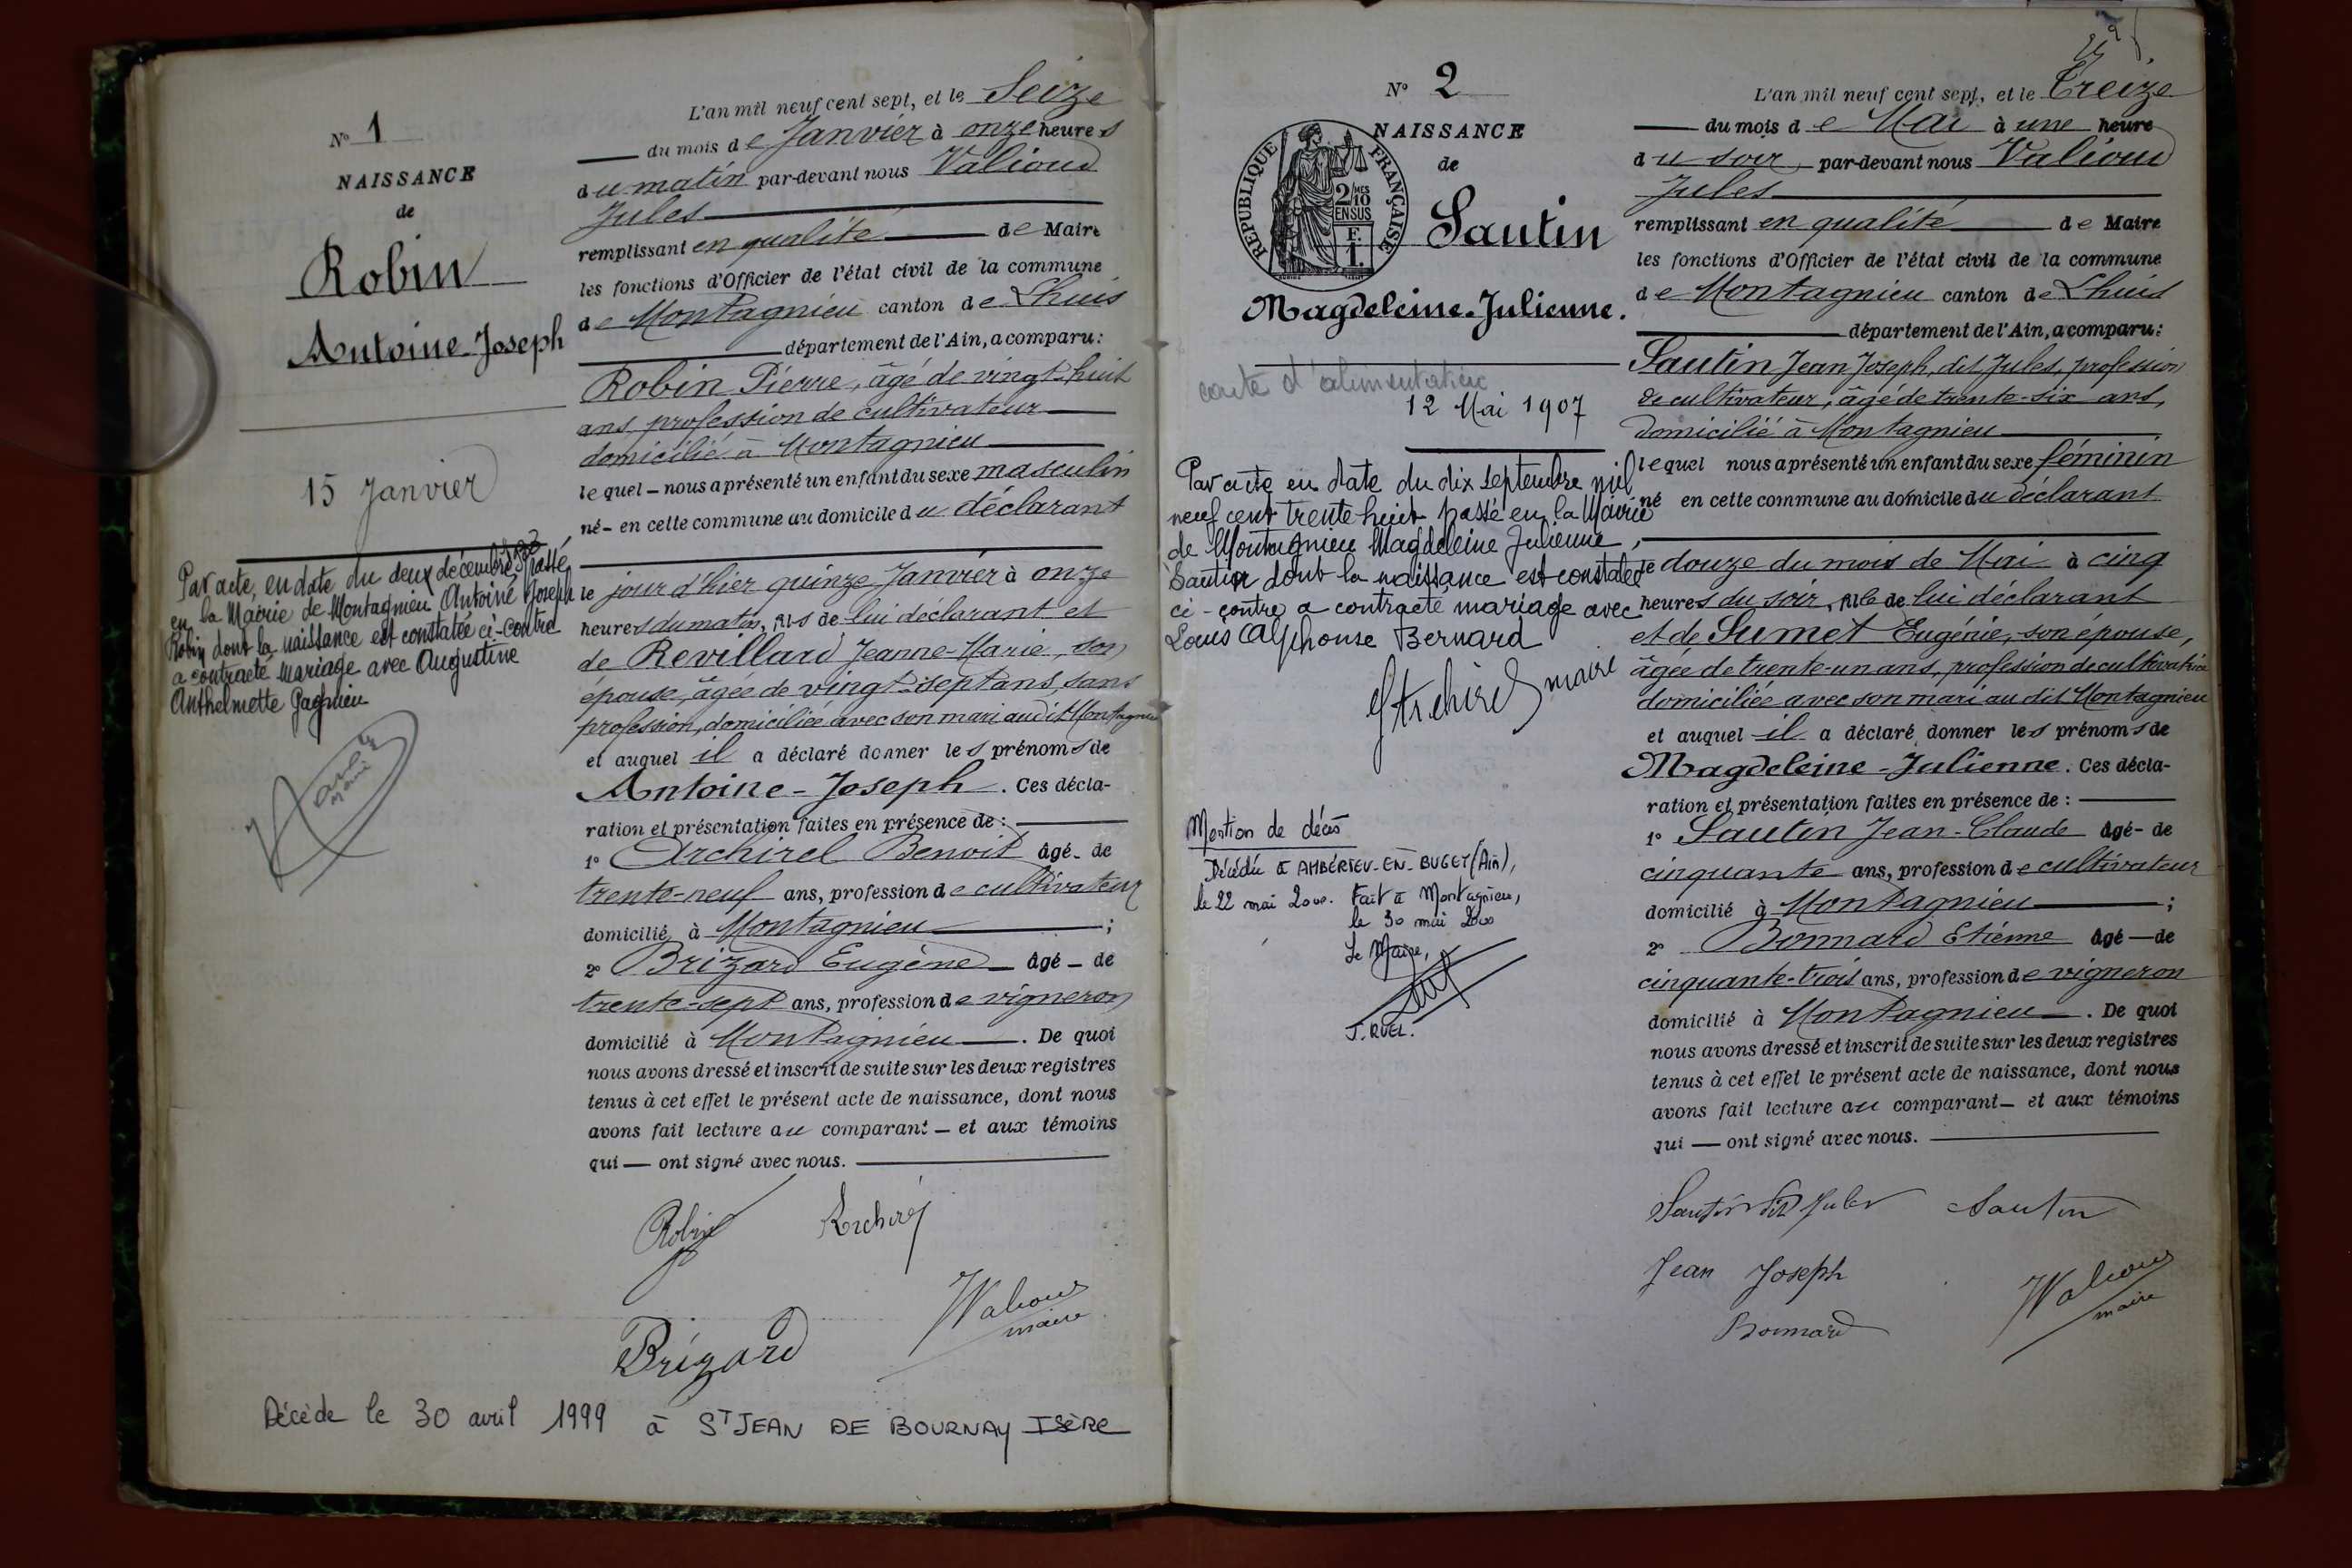 N° 1
NAISSANCE
de
Robin
Antoine-Joseph
15 Janvier
Par acte, en date du deux décembre passé
en la Mairie de Montagnieu Antoine Joseph
Robin dont la naissance est constatée ci-contre
a contracté mariage avec Augustine
Anthelmette Gagnieu
maire
L'an mil neuf cent sept, et le Seize
du mois de Janvier à onze heures
du matin par-devant nous Valioud
Jules
remplissant en qualité de Maire
les fonctions d'Officier de l'état civil de la commune
de Montagnieu canton de Lhuis
département de l'Ain, a comparu:
Robin Pierre, âgé de vingt-huit
ans profession de cultivateur
domicilié à Montagnieu
lequel – nous a présenté un enfant du sexe masculin
né – en cette commune au domicile du déclarant
le jour d'hier quinze Janvier à onze
heures du matin, fils de lui déclarant et
de Revillard Jeanne-Marie, son
épouse, âgée de vingt-sept ans, sans
profession, domiciliée avec son mari audit Montagnieu
et auquel il a déclaré donner les prénoms de
Antoine-Joseph. Ces décla-
ration et présentation faites en présence de :
1° Archirel Benoit âgé – de
trente-neuf ans, profession de cultivateur
domicilié à Montagnieu ;
2° Brizard Eugène – âgé – de
trente-sept ans, profession de vigneron
domicilié à Montagnieu. De quoi
nous avons dressé et inscrit de suite sur les deux registres
tenus à cet effet le présent acte de naissance, dont nous
avons fait lecture au comparant – et aux témoins
qui — ont signé avec nous.
Robin Archirel
JValioud
maire
Brizard
Décède le 30 avril 1999 à ST JEAN DE BOURNAY ISèRe
N° 2
NAISSANCE
de
REPUBLIQUE FRANÇAISE
2/10 MES
EN SUS
F.
1.
Sautin
Magdeleine-Julienne.
carte d'alimentation
12 Mai 1907
Par acte en date du dix septembre mil
neuf cent trente huit passé en la Mairie
de Montagnieu Magdeleine Julienne
Sautin dont la naissance est constatée
ci-contre a contracté mariage avec
Louis Alphonse Bernard
Archirel maire
Mention de décès
Décédée à AMBÉRIEU-EN-BUGEY (Ain),
le 22 mai 2000. Fait à Montagnieu,
le 30 mai 2000
Le Maire,
J. RUEL.
L'an mil neuf cent sept, et le Treize
du mois de Mai à une heure
du soir par-devant nous Valioud
Jules
remplissant en qualité de Maire
les fonctions d'Officier de l'état civil de la commune
de Montagnieu canton de Lhuis
département de l'Ain, a comparu:
Sautin Jean Joseph, dit Jules, profession
de cultivateur, âgé de trente-six ans,
domicilié à Montagnieu
lequel nous a présenté un enfant du sexe féminin
né en cette commune au domicile du déclarant
le douze du mois de Mai à cinq
heures du soir, fille de lui déclarant
et de Sumet Eugénie, son épouse,
âgée de trente-un ans, profession de cultivatrice
domiciliée avec son mari au dit Montagnieu
et auquel il a déclaré donner les prénoms de
Magdeleine-Julienne. Ces décla-
ration et présentation faites en présence de :
1° Sautin Jean-Claude âgé – de
cinquante ans, profession de cultivateur
domicilié à Montagnieu ;
2° Bonnard Etiénne âgé — de
cinquante-trois ans, profession de vigneron
domicilié à Montagnieu. De quoi
nous avons dressé et inscrit de suite sur les deux registres
tenus à cet effet le présent acte de naissance, dont nous
avons fait lecture au comparant – et aux témoins
qui — ont signé avec nous.
Sautin dit Jules Sautin
Jean Joseph
JValioud
maire
Bonnard